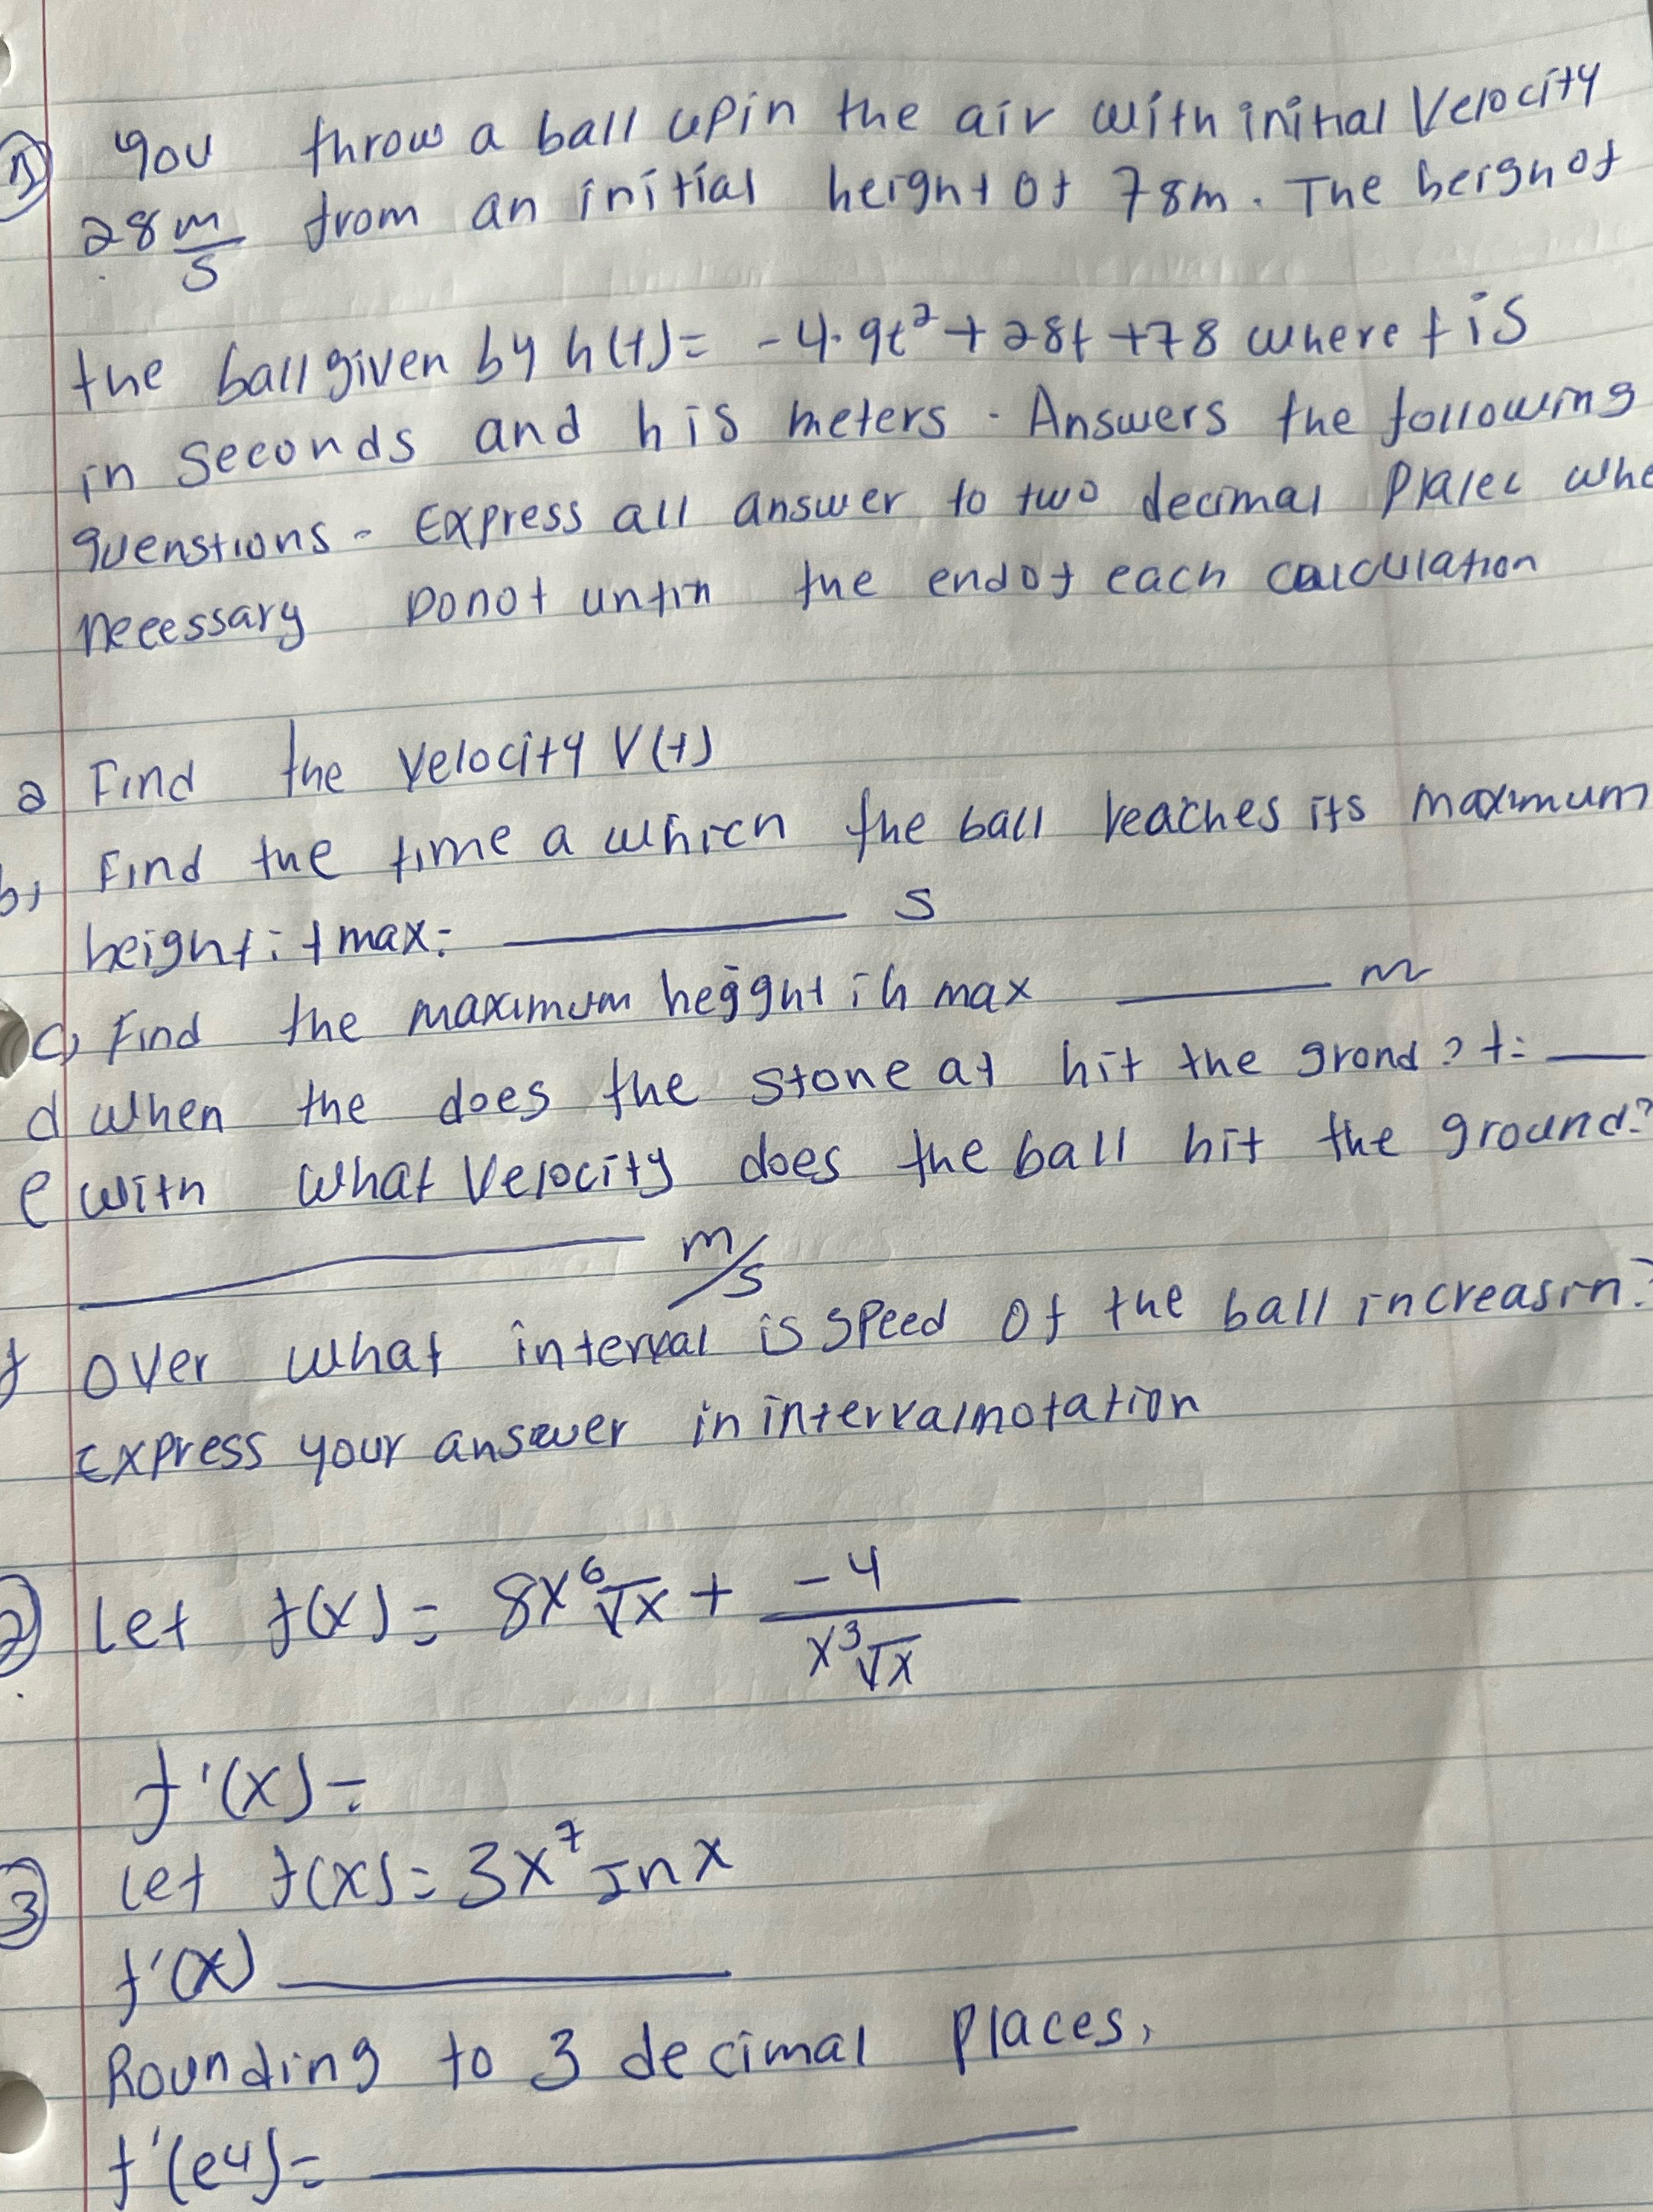 ① You throw a ball up in the air with initial Velocity
28 m/s from an initial height of 78m. The heighof
the ball given by h(t) = -4.9t² + 28t + 78 where t is
in seconds and h is meters. Answers the following
quenstions - Express all answer to two decimal
necessary Do not the end of each calculation
a Find the velocity V(t)
b, Find the time a which the ball reaches its maximum
height: tmax: ______ s
c, Find the maximum height ; h max ______ m
d when the does the stone at hit the grond? t: ___
e with what velocity does the ball hit the ground?
______ m/s
f over what interval is speed of the ball increasin?
Express your answer in intervalnotation
② Let f(x) = 8x⁶√x + -4/x³√x
f'(x) =
③ Let f(x) = 3x⁷ Inx
f'(x) ______
Rounding to 3 decimal places,
f'(e4) = ______